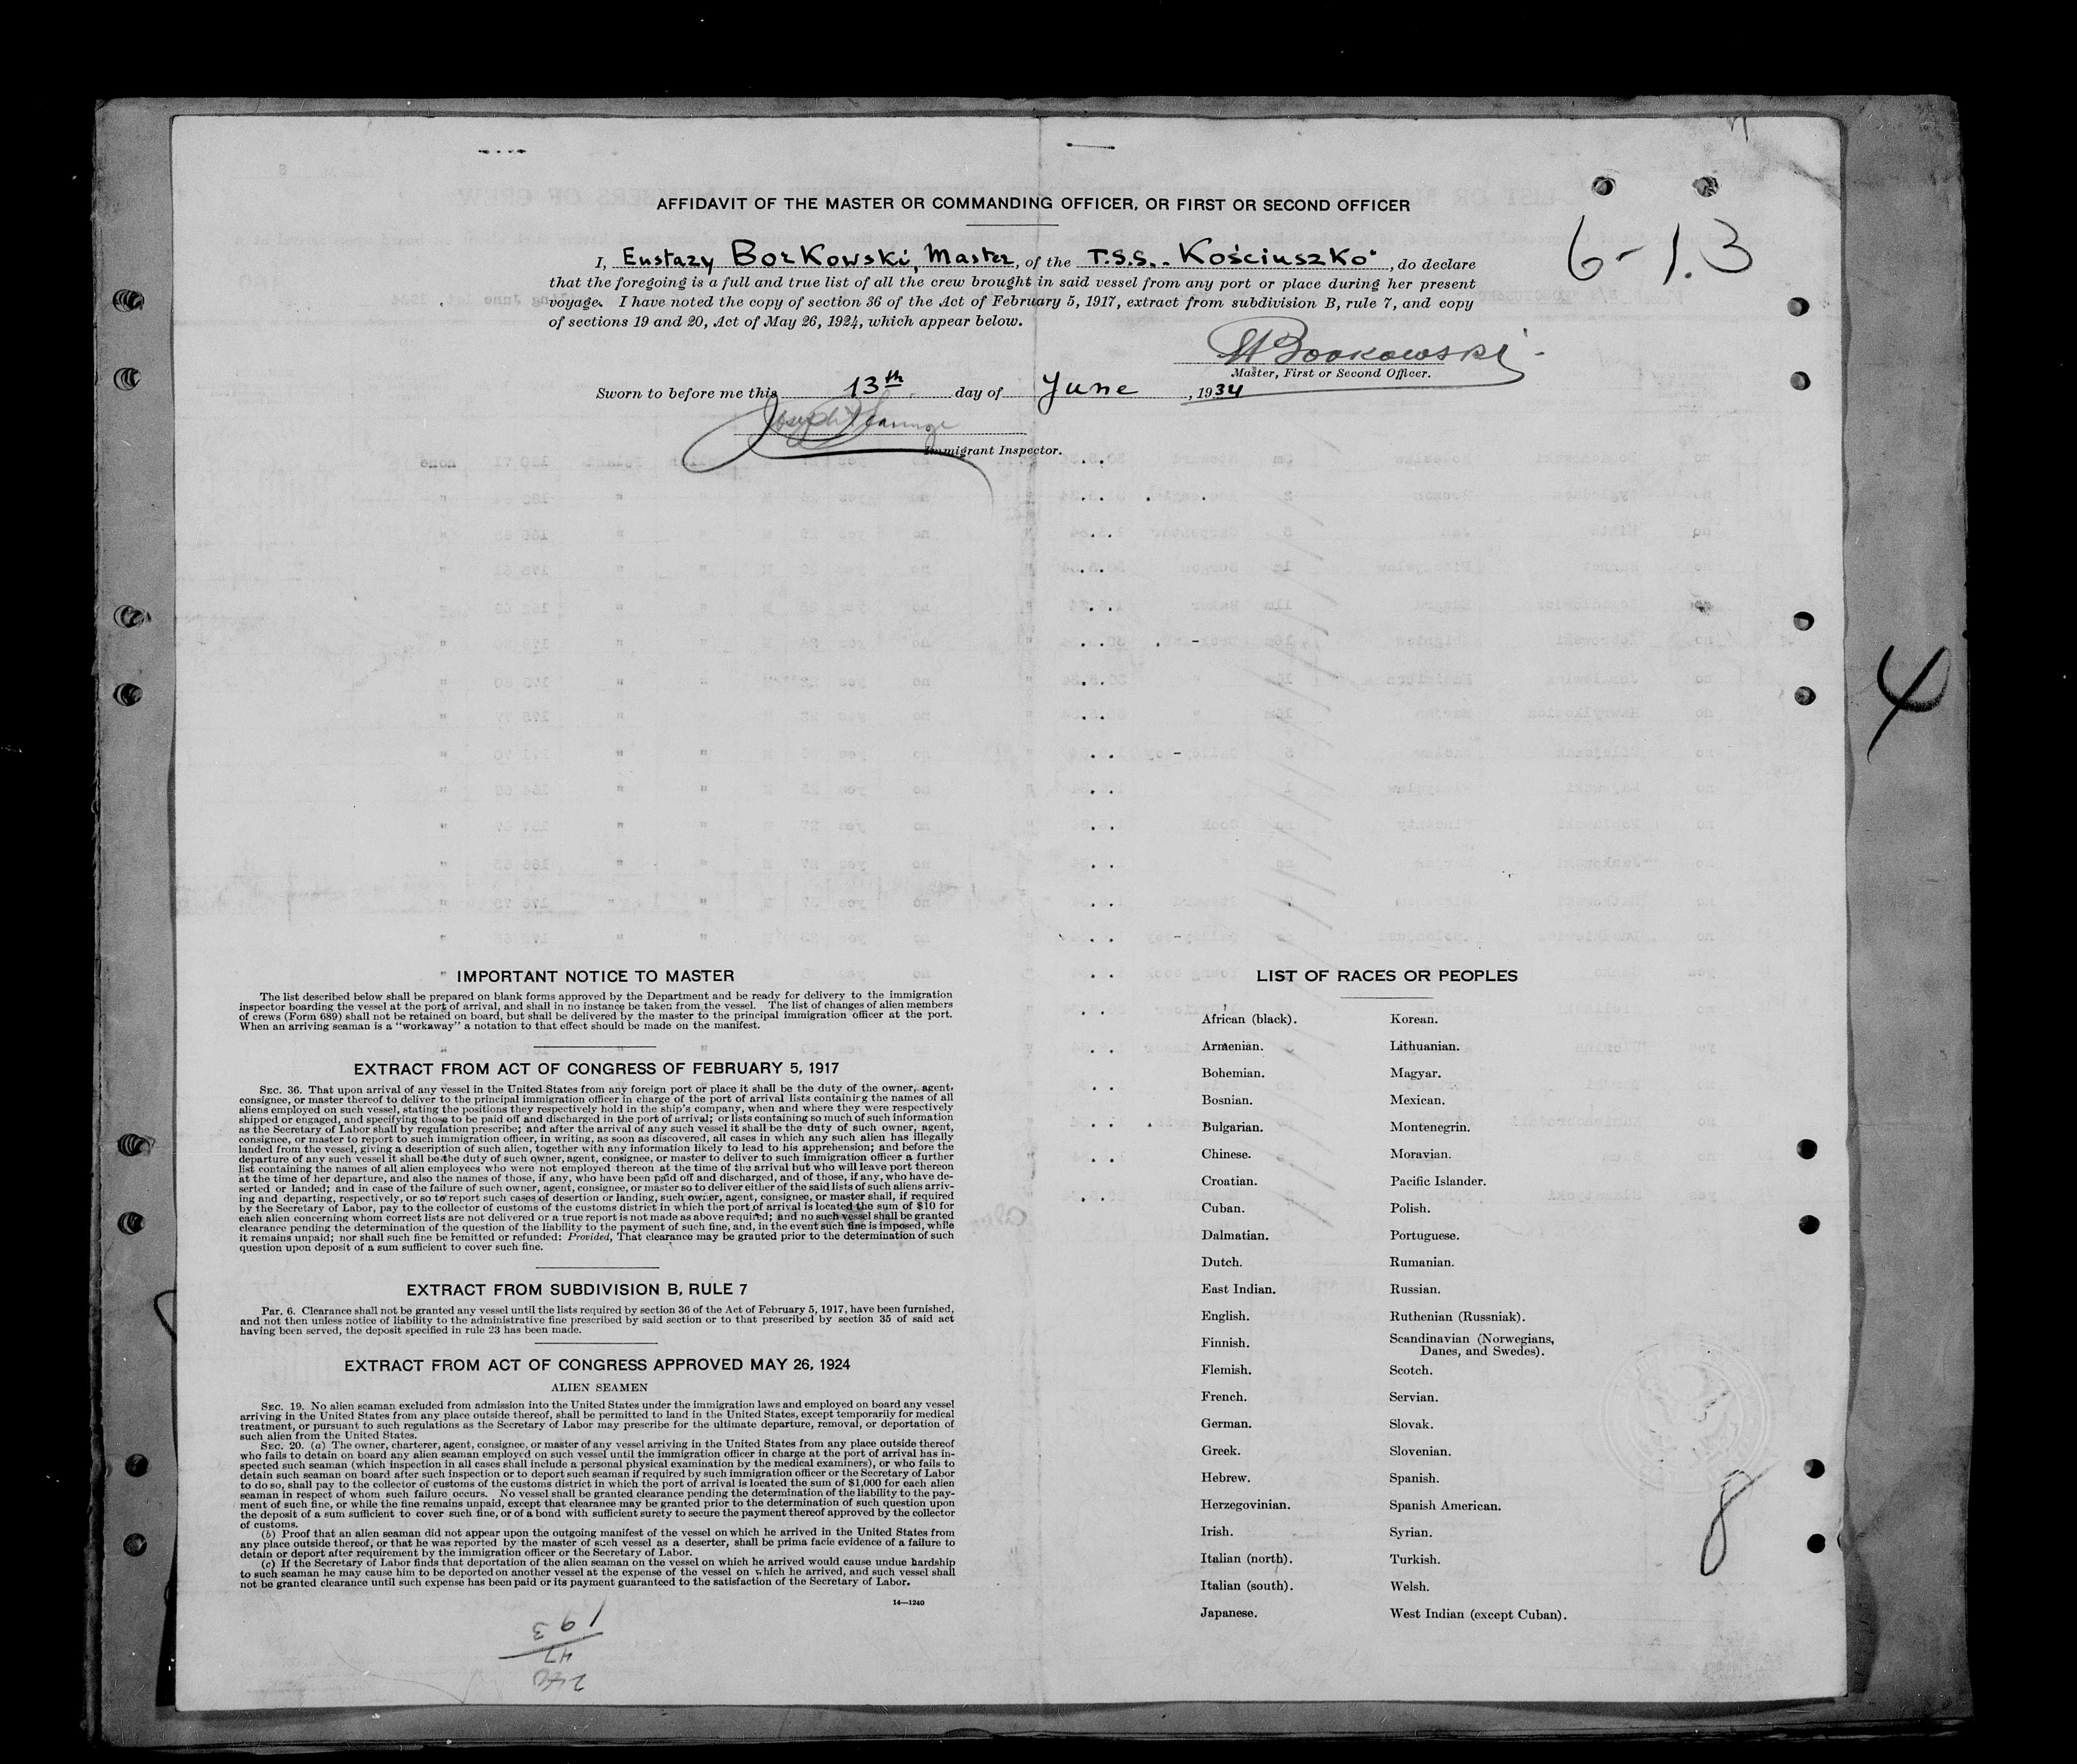 AFFIDAVIT OF THE MASTER OR COMMANDING OFFICER, OR FIRST OR SECOND OFFICER
6-13
I, Eustazy Borkowski, Master, of the T.S.S. "Kościuszko", do declare
that the foregoing is a full and true list of all the crew brought in said vessel from any port or place during her present
voyage. I have noted the copy of section 36 of the Act of February 5, 1917, extract from subdivision B, rule 7, and copy
of sections 19 and 20, Act of May 26, 1924, which appear below.
Borkowski
Master, First or Second Officer.
Sworn to before me this 13th day of June, 1934
Immigrant Inspector.
4
IMPORTANT NOTICE TO MASTER
The list described below shall be prepared on blank forms approved by the Department and be ready for delivery to the immigration
inspector boarding the vessel at the port of arrival, and shall in no instance be taken from the vessel. The list of changes of alien members
of crews (Form 689) shall not be retained on board, but shall be delivered by the master to the principal immigration officer at the port.
When an arriving seaman is a "workaway" a notation to that effect should be made on the manifest.
EXTRACT FROM ACT OF CONGRESS OF FEBRUARY 5, 1917
SEC. 36. That upon arrival of any vessel in the United States from any foreign port or place it shall be the duty of the owner, agent,
consignee, or master thereof to deliver to the principal immigration officer in charge of the port of arrival lists containing the names of all
aliens employed on such vessel, stating the positions they respectively hold in the ship's company, when and where they were respectively
shipped or engaged, and specifying those to be paid off and discharged in the port of arrival; or lists containing so much of such information
as the Secretary of Labor shall by regulation prescribe; and after the arrival of any such vessel it shall be the duty of such owner, agent,
consignee, or master to report to such immigration officer, in writing, as soon as discovered, all cases in which any such alien has illegally
landed from the vessel, giving a description of such alien, together with any information likely to lead to his apprehension; and before the
departure of any such vessel it shall be the duty of such owner, agent, consignee, or master to deliver to such immigration officer a further
list containing the names of all alien employees who were not employed thereon at the time of the arrival but who will leave port thereon
at the time of her departure, and also the names of those, if any, who have been paid off and discharged, and of those, if any, who have de-
serted or landed; and in case of the failure of such owner, agent, consignee, or master so to deliver either of the said lists of such aliens arriv-
ing and departing, respectively, or so to report such cases of desertion or landing, such owner, agent, consignee, or master shall, if required
by the Secretary of Labor, pay to the collector of customs of the customs district in which the port of arrival is located the sum of $10 for
each alien concerning whom correct lists are not delivered or a true report is not made as above required; and no such vessel shall be granted
clearance pending the determination of the question of the liability to the payment of such fine, and, in the event such fine is imposed, while
it remains unpaid; nor shall such fine be remitted or refunded: Provided, That clearance may be granted prior to the determination of such
question upon deposit of a sum sufficient to cover such fine.
EXTRACT FROM SUBDIVISION B, RULE 7
Par. 6. Clearance shall not be granted any vessel until the lists required by section 36 of the Act of February 5, 1917, have been furnished,
and not then unless notice of liability to the administrative fine prescribed by said section or to that prescribed by section 35 of said act
having been served, the deposit specified in rule 23 has been made.
EXTRACT FROM ACT OF CONGRESS APPROVED MAY 26, 1924
ALIEN SEAMEN
SEC. 19. No alien seaman excluded from admission into the United States under the immigration laws and employed on board any vessel
arriving in the United States from any place outside thereof, shall be permitted to land in the United States, except temporarily for medical
treatment, or pursuant to such regulations as the Secretary of Labor may prescribe for the ultimate departure, removal, or deportation of
such alien from the United States.
SEC. 20. (a) The owner, charterer, agent, consignee, or master of any vessel arriving in the United States from any place outside thereof
who fails to detain on board any alien seaman employed on such vessel until the immigration officer in charge at the port of arrival has in-
spected such seaman (which inspection in all cases shall include a personal physical examination by the medical examiners), or who fails to
detain such seaman on board after such inspection or to deport such seaman if required by such immigration officer or the Secretary of Labor
to do so, shall pay to the collector of customs of the customs district in which the port of arrival is located the sum of $1,000 for each alien
seaman in respect of whom such failure occurs. No vessel shall be granted clearance pending the determination of the liability to the pay-
ment of such fine, or while the fine remains unpaid, except that clearance may be granted prior to the determination of such question upon
the deposit of a sum sufficient to cover such fine, or of a bond with sufficient surety to secure the payment thereof approved by the collector
of customs.
(b) Proof that an alien seaman did not appear upon the outgoing manifest of the vessel on which he arrived in the United States from
any place outside thereof, or that he was reported by the master of such vessel as a deserter, shall be prima facie evidence of a failure to
detain or deport after requirement by the immigration officer or the Secretary of Labor.
(c) If the Secretary of Labor finds that deportation of the alien seaman on the vessel on which he arrived would cause undue hardship
to such seaman he may cause him to be deported on another vessel at the expense of the vessel on which he arrived, and such vessel shall
not be granted clearance until such expense has been paid or its payment guaranteed to the satisfaction of the Secretary of Labor.
14—1240
240
47
193
LIST OF RACES OR PEOPLES
African (black).
Armenian.
Bohemian.
Bosnian.
Bulgarian.
Chinese.
Croatian.
Cuban.
Dalmatian.
Dutch.
East Indian.
English.
Finnish.
Flemish.
French.
German.
Greek.
Hebrew.
Herzegovinian.
Irish.
Italian (north).
Italian (south).
Japanese.
Korean.
Lithuanian.
Magyar.
Mexican.
Montenegrin.
Moravian.
Pacific Islander.
Polish.
Portuguese.
Rumanian.
Russian.
Ruthenian (Russniak).
Scandinavian (Norwegians,
Danes, and Swedes).
Scotch.
Servian.
Slovak.
Slovenian.
Spanish.
Spanish American.
Syrian.
Turkish.
Welsh.
West Indian (except Cuban).
8